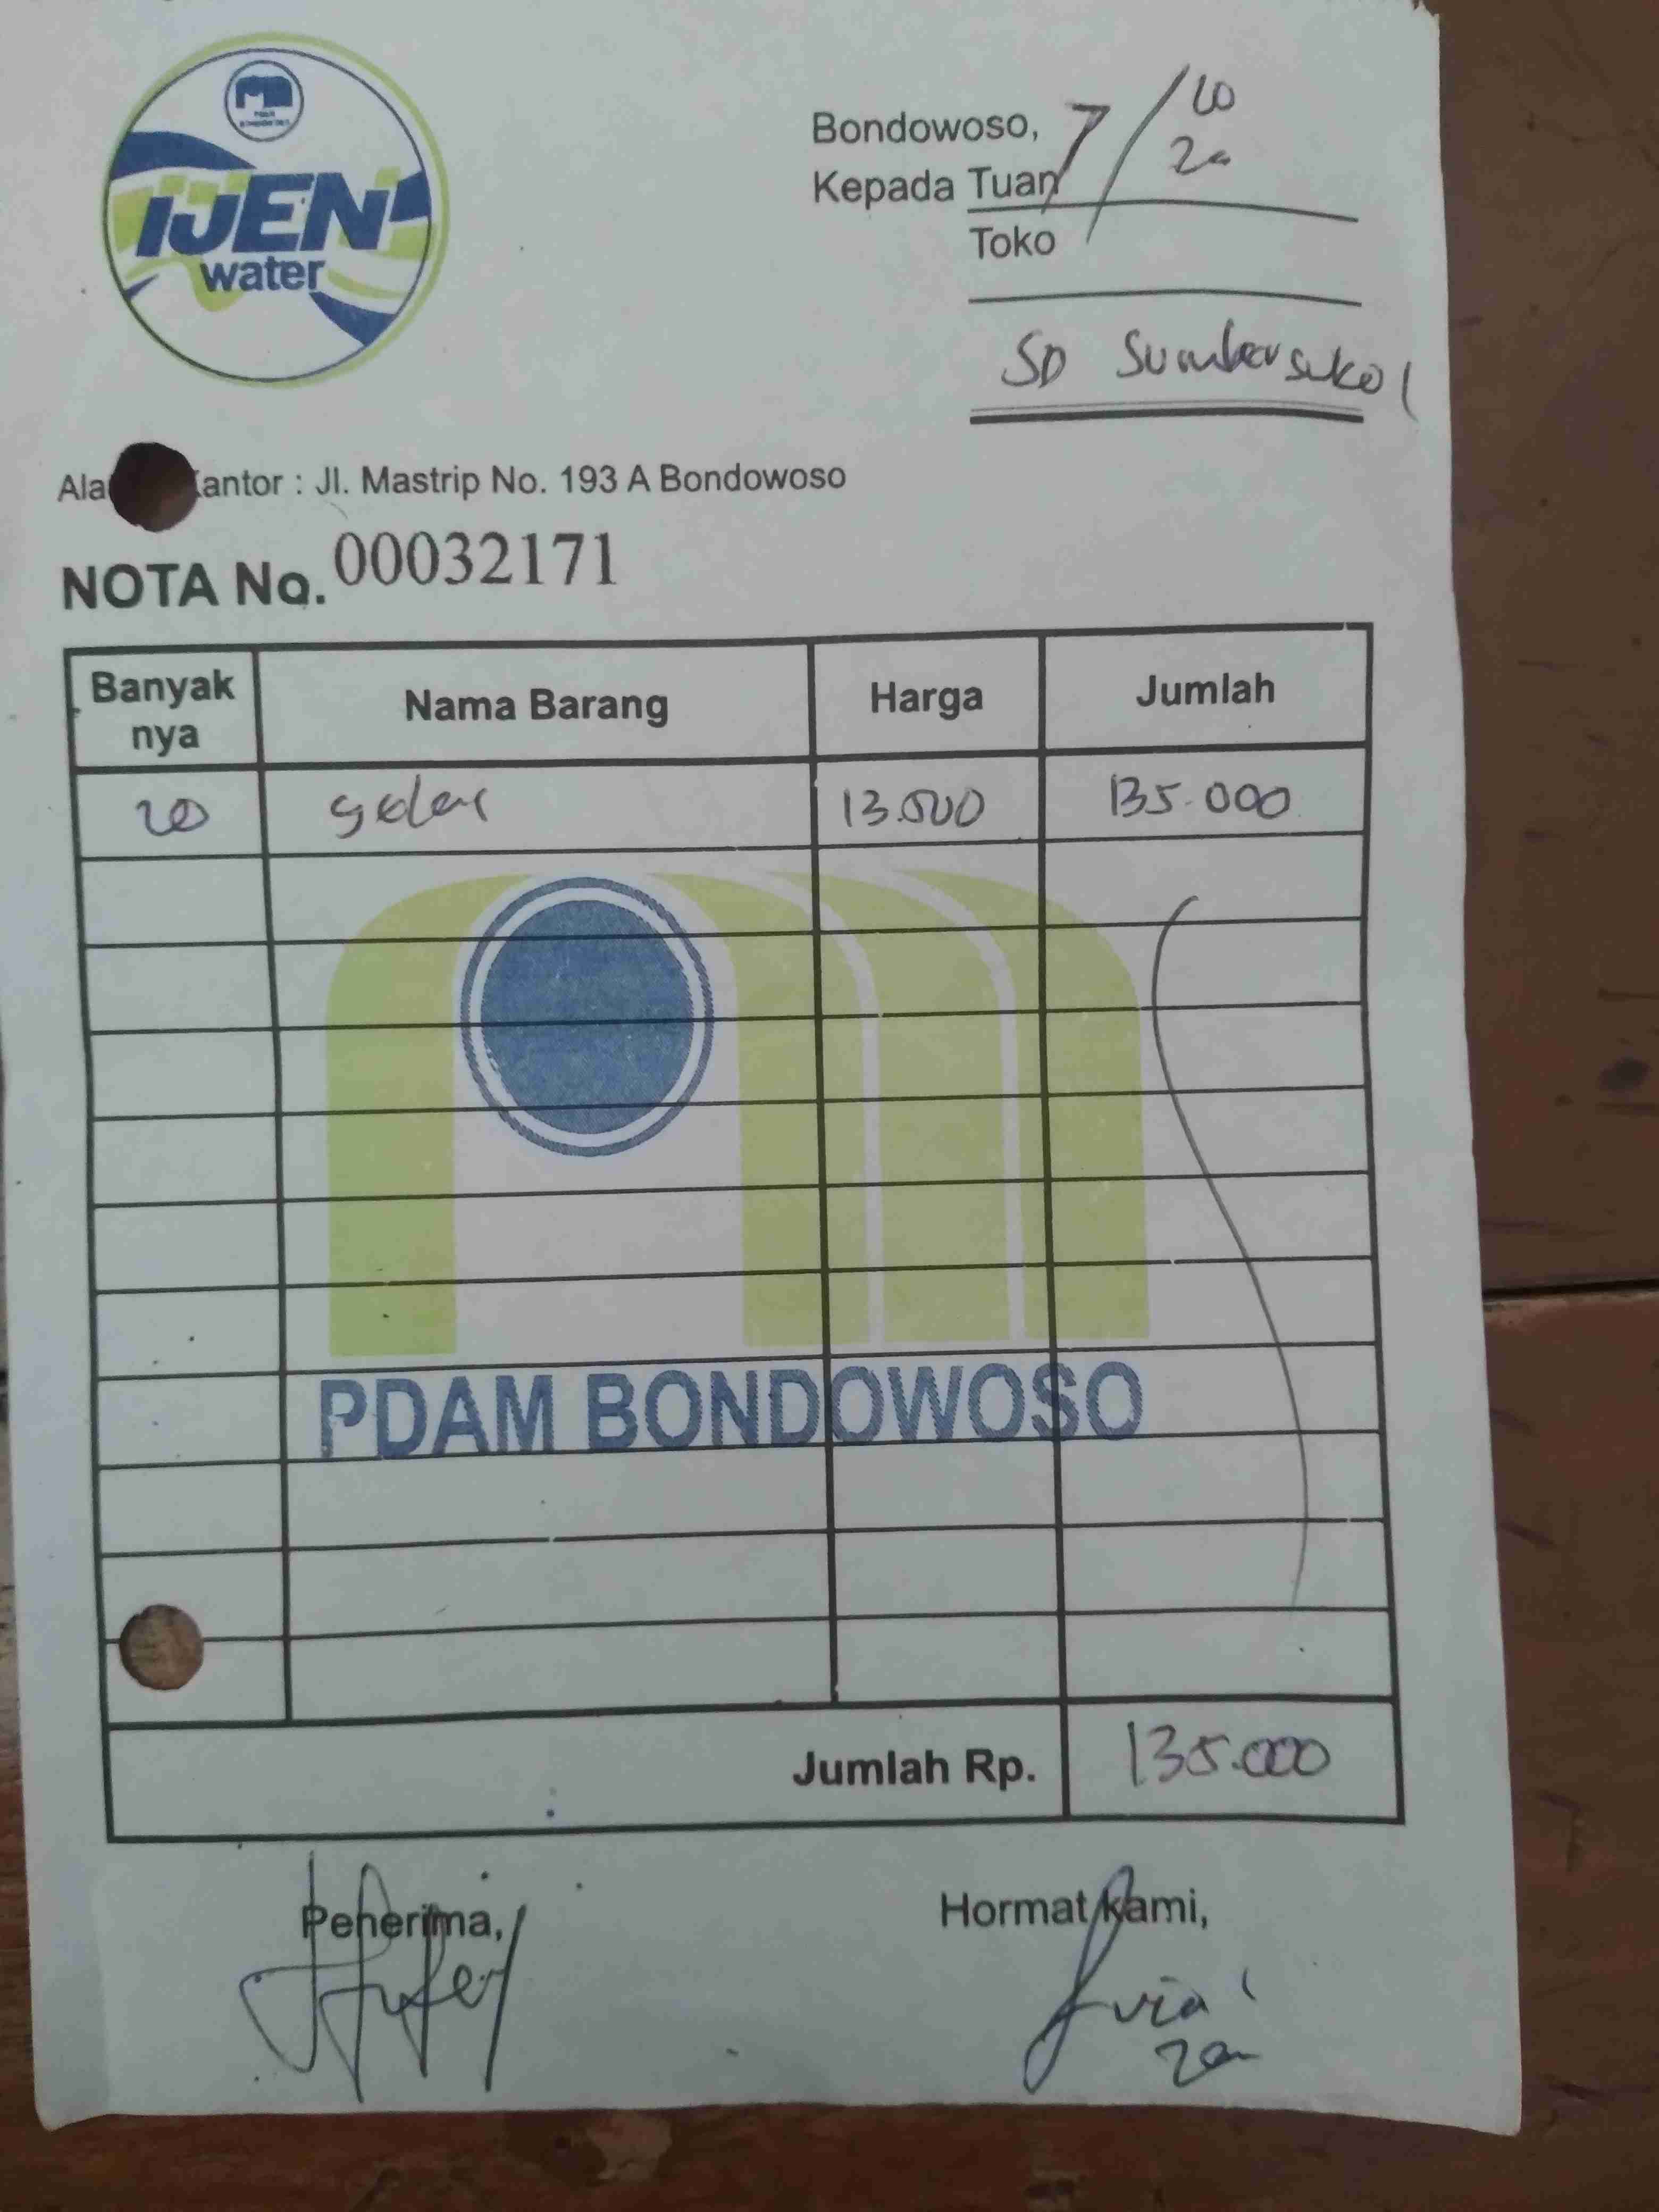 IJEN
water
Bondowoso, 7/10
20
Kepada Tuan
Toko
SD Sumbersuko 1
Ala antor : Jl. Mastrip No. 193 A Bondowoso
NOTA No. 00032171
Banyak nya Nama Barang Harga Jumlah
10 gelas 13.500 135.000
PDAM BONDOWOSO
Jumlah Rp. 135.000
Penerima, Hormat Kami,